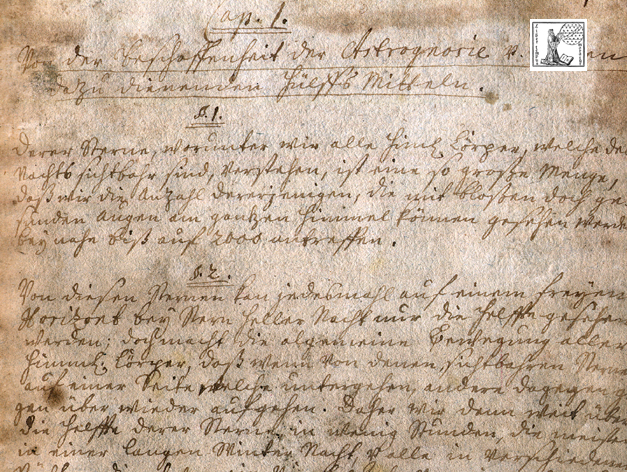 Cap. 1.
Von der beschaffenheit der Astrognosie
dazu dienenden Hülffs Mitteln.
§.1.
Derer Sterne, worunter wir alle himl. Cörper, welche des
Nachts sichtbahr sind, verstehen, ist eine so große Menge,
daß wir die Anzahl dererjenigen, die mit bloßen doch ge
sunden Augen am gantzen Himmel können gesehen werden
bey nahe biß auf 2000 antreffen.
§.2.
Von diesen Sternen kan jedesmahl auf einem freyen
Horizont bey Stern heller Nacht nur die helffte gesehen
werden; doch macht die algemeine Bewegung aller
himml. Cörper, daß wenn von denen sichtbahren Sternen
auf einer Seite welche untergehen, andere dagegen
gen über wieder aufgehen. Daher wir denn weit über
die helffte derer Sterne in wenig Stunden, die meisten
in einer langen Winter Nacht